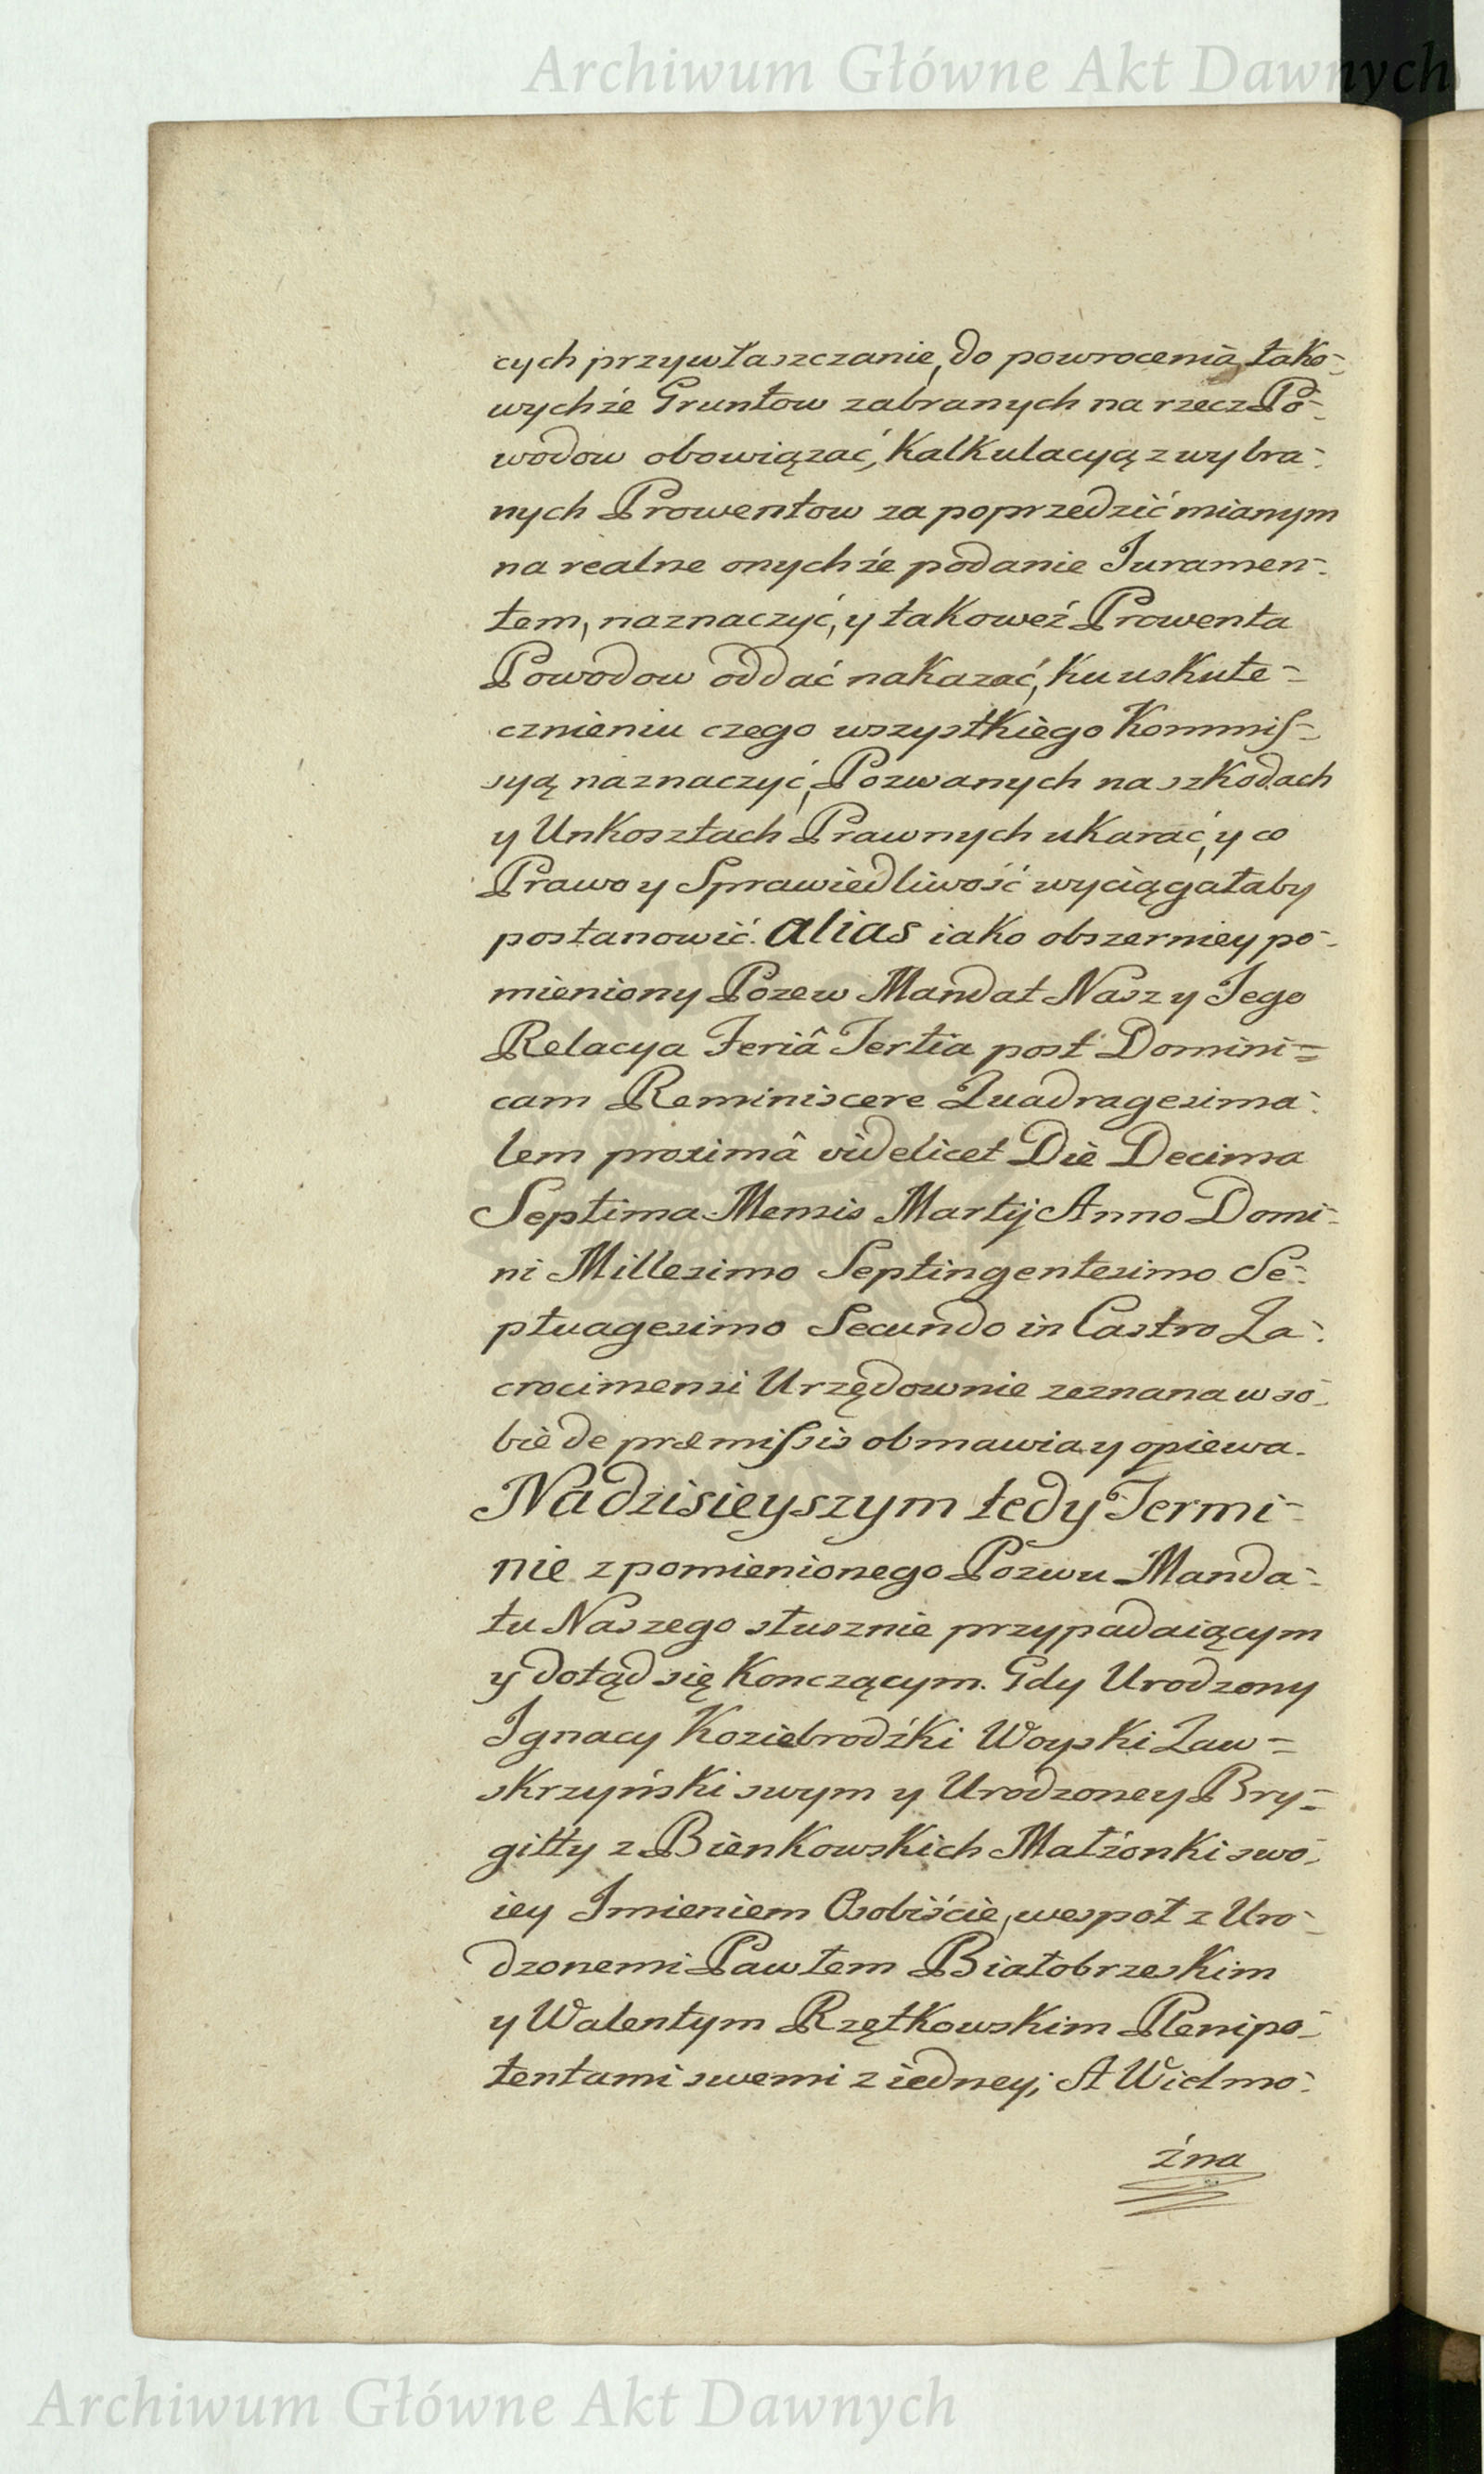 Archiwum Główne Akt Dawnych
cych przywłaszczanie, do powrocenia tako-
wychże Gruntow zabranych na rzecz Po-
wodow obowiązać, Kalkulacyą z wybra-
nych Prowentow za poprzedzić mianym
na realne onychże podanie Juramen-
tem, naznaczyć, y takoweż Prowenta
Powodow oddać nakazać, ku uskute-
cznieniu czego wszystkiego Kommis-
syą naznaczyć, Pozwanych na szkodach
y Unkosztach Prawnych ukarać, y co
Prawo y Sprawiedliwość wyciągałaby
postanowić. alias iako obszerniey po-
mieniony Pozew Mandat Nasz y Jego
Relacya Feriâ Tertia post Domini=
cam Reminiscere Quadragesima-
lem proximâ videlicet Die Decima
Septima Mensis Martij Anno Domi-
ni Millesimo Septingentesimo Se-
ptuagesimo Secundo in Castro Za-
crocimensi Urzędownie zeznana w so-
bie de præmissis obmawia y opiewa.
Na dzisieyszym tedy Termi-
nie z pomienionego Pozwu Manda-
tu Naszego słusznie przypadaiącym
y dotąd się Konczącym. Gdy Urodzony
Ignacy Koziebrodzki Woyski Zaw=
skrzyński swym y Urodzoney Bry=
gitty z Bienkowskich Małżonki swo-
iey Imieniem Osobiście, wespoł z Uro-
dzonemi Pawłem Białobrzeskim
y Walentym Rzętkowskim Plenipo-
tentami swemi z iedney; A Wielmo-
żna
Archiwum Główne Akt Dawnych